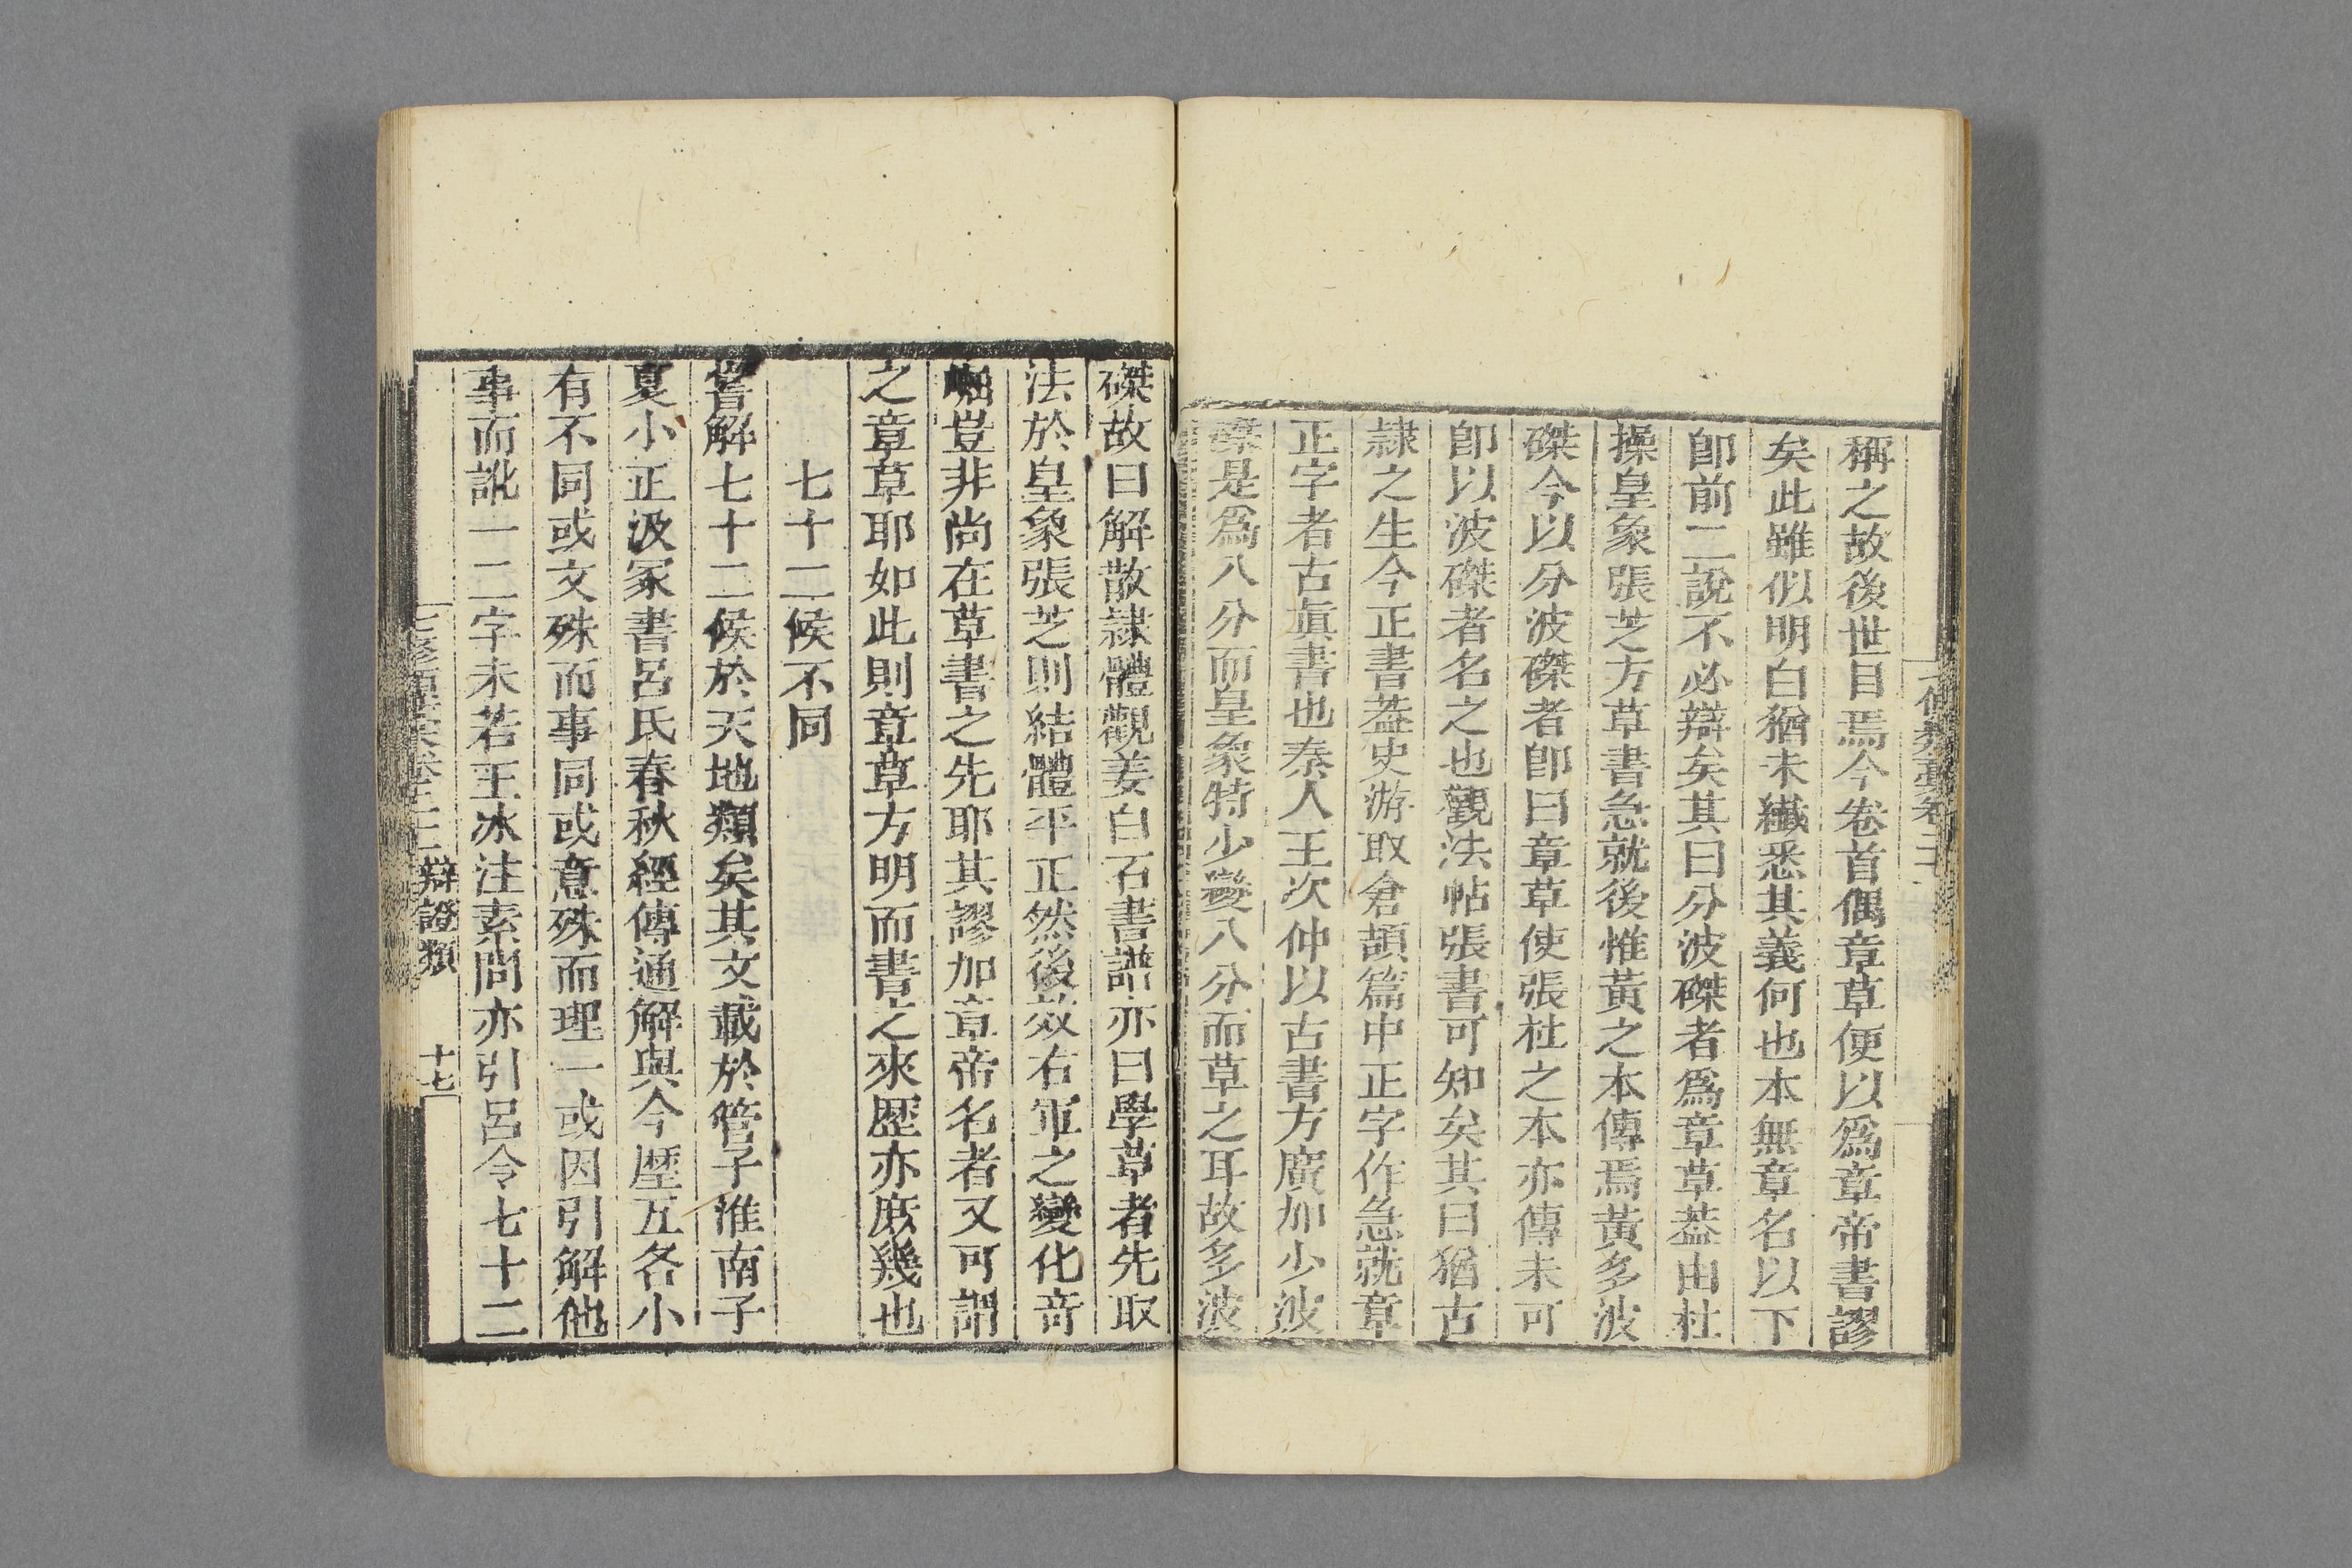 稱之故後世目焉今卷首偶章草便以爲章帝書謬
矣此雖似明白猶未纖悉其義何也本無章名以下
卽前二說不必辯矣其曰分波磔者爲章草葢由杜
操皇象張芝方草書急就後惟黃之本傳焉黃多波
磔今以分波磔者卽曰章草使張杜之本亦傳未可
卽以波磔者名之也觀法帖張書可知矣其曰猶古
隷之生今正書葢史游取倉頡篇中正字作急就章
正字者古眞書也秦人王次仲以古書方廣加少波
磔是爲八分而皇象特少變八分而草之耳故多波
磔故曰解散隷體觀姜白石書譜亦曰學草者先取
法於皇象張芝則結體平正然後效右軍之變化奇
崛豈非尚在草書之先耶其謬加章帝名者又可謂
之章草耶如此則章草方明而書之來歷亦庶幾也
七十二候不同
嘗解七十二候於天地類矣其文載於管子淮南子
夏小正汲冢書呂氏春秋經傳通解與今歷互各小
有不同或文殊而事同或意殊而理一或因引解他
事而訛一二字未若王冰注素問亦引呂令七十二
七修類稾卷二十三 辯證類 十七